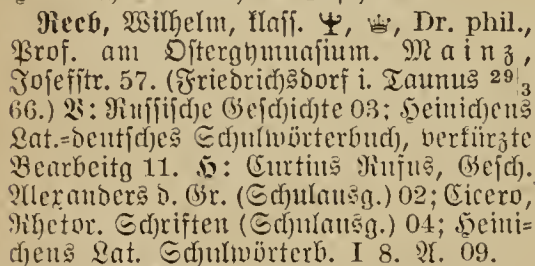 Reeb, Wilhelm, klass. Dr. phil.,
Prof. am Ostergymnasium. Mainz,
Josefstr. 57. (Friedrichsdorf i. Taunus 29/3
66.) V: Russische Geschichte 03; Heinichens
Lat.=deutsches Schulwörterbuch, verkürzte
Bearbeitg 11. H: Curtius Rufus, Gesch.
Alexanders d. Gr. (Schulausg.) 02; Cicero,
Rhetor. Schriften (Schulausg.) 04; Heini=
chens Lat. Schulwörterb. I 8. A. 09.